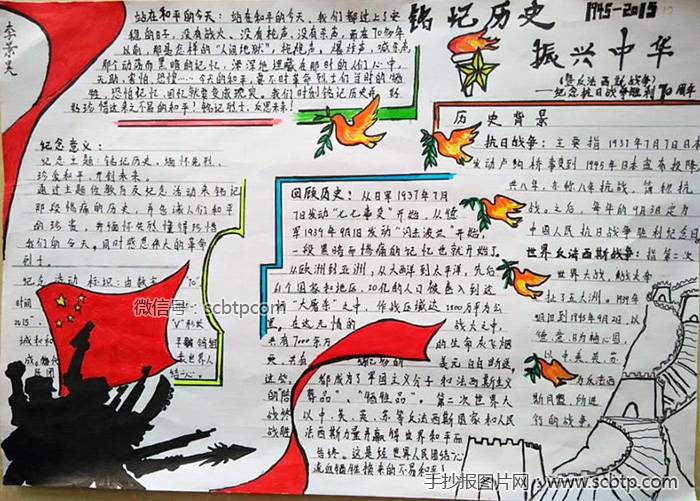 李景昊
铭记历史
1945-2015
振兴中华
(暨反法西斯战争)
——纪念抗日战争胜利70周年
站在和平的今天：站在和平的今天，我们都过上了安
稳的日子，没有战火、没有枪声，没有杀声，而在70多年
以前，那是怎样的"人间地狱"，枪炮声，爆炸声，
那个动荡而黑暗的记忆，深深地埋藏在那时的人们心中，
无助，害怕，恐惶……今天的和平，莫不时革命烈士们当时的牺
牲，恐怕记忆、回忆就要变成现实。我们时刻铭记历史，
珍惜这来之不易的和平！铭记烈士，反思未来！
纪念意义：
纪念主题：铭记历史，缅怀先烈，
珍爱和平、开创未来。
通过主题位教育及纪念活动来铭记
那段惨痛的历史，并告诫人们和平
的珍贵，并缅怀先烈懂得珍惜
我们的今天。同时感恩伟大的革命
烈士。
纪念活动标识：由数字"70"
时间
2015"、
"V"和
城和和
平鸽组
成。
来世界人
民团
结一心。
回顾历史：从日军1937年7月
7日发动"七七事变"开始，从德
军1939年9月1日发动"闪击波兰"开始，
一段黑暗而惨痛的记忆也就开始了。
从欧洲到亚洲，从大西洋到太平洋，先后
个国家和地区，20亿的人口被卷入到这
"大屠杀"之中，作战区域达
里。在这无情的
战火之中，
共有7000多万
的生命灰飞烟
美元白白断送，
这些，
都成为了军国主义分子和法西斯主义
的陪
葬品"、"牺牲品"。第二次世界大
战终
以中、美、英、苏等反法西斯国家和人民
战胜
法西斯力量并赢得世界和平而
告终。这是经世界人民团结一心
流血牺牲换来的不易和平！
历史背景
抗日战争：主要指1937年7月7日日本
发动卢沟桥事变到1945年日本宣布投降，
共八年，亦称八年抗战，简称抗
战。之后，每年的9月3日定为
中国人民抗日战争胜利纪念日
世界反法西斯战争：指第二次
世界大战，战火
扩于五大洲。1939年
始到1945年9月2日，以
德、意、日为轴心国，
以中、美、英、苏
为反法西
斯同盟，所进
行的战争。
微信号：scbtpcom
手抄报图片网 - www.scbtp.com